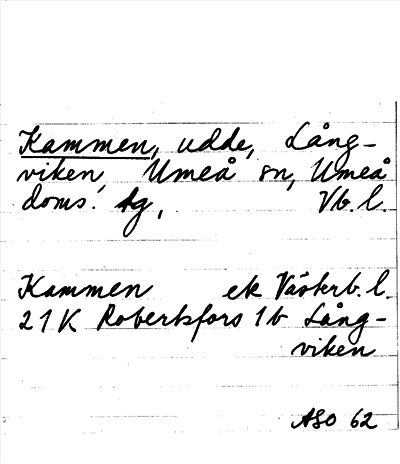 Kammen, udde, Lång-
viken, Umeå sn, Umeå
doms. tg, Vb. l.
Kammen ek Västerb. l.
21K Robertsfors 1b Lång-
viken
ASO 62